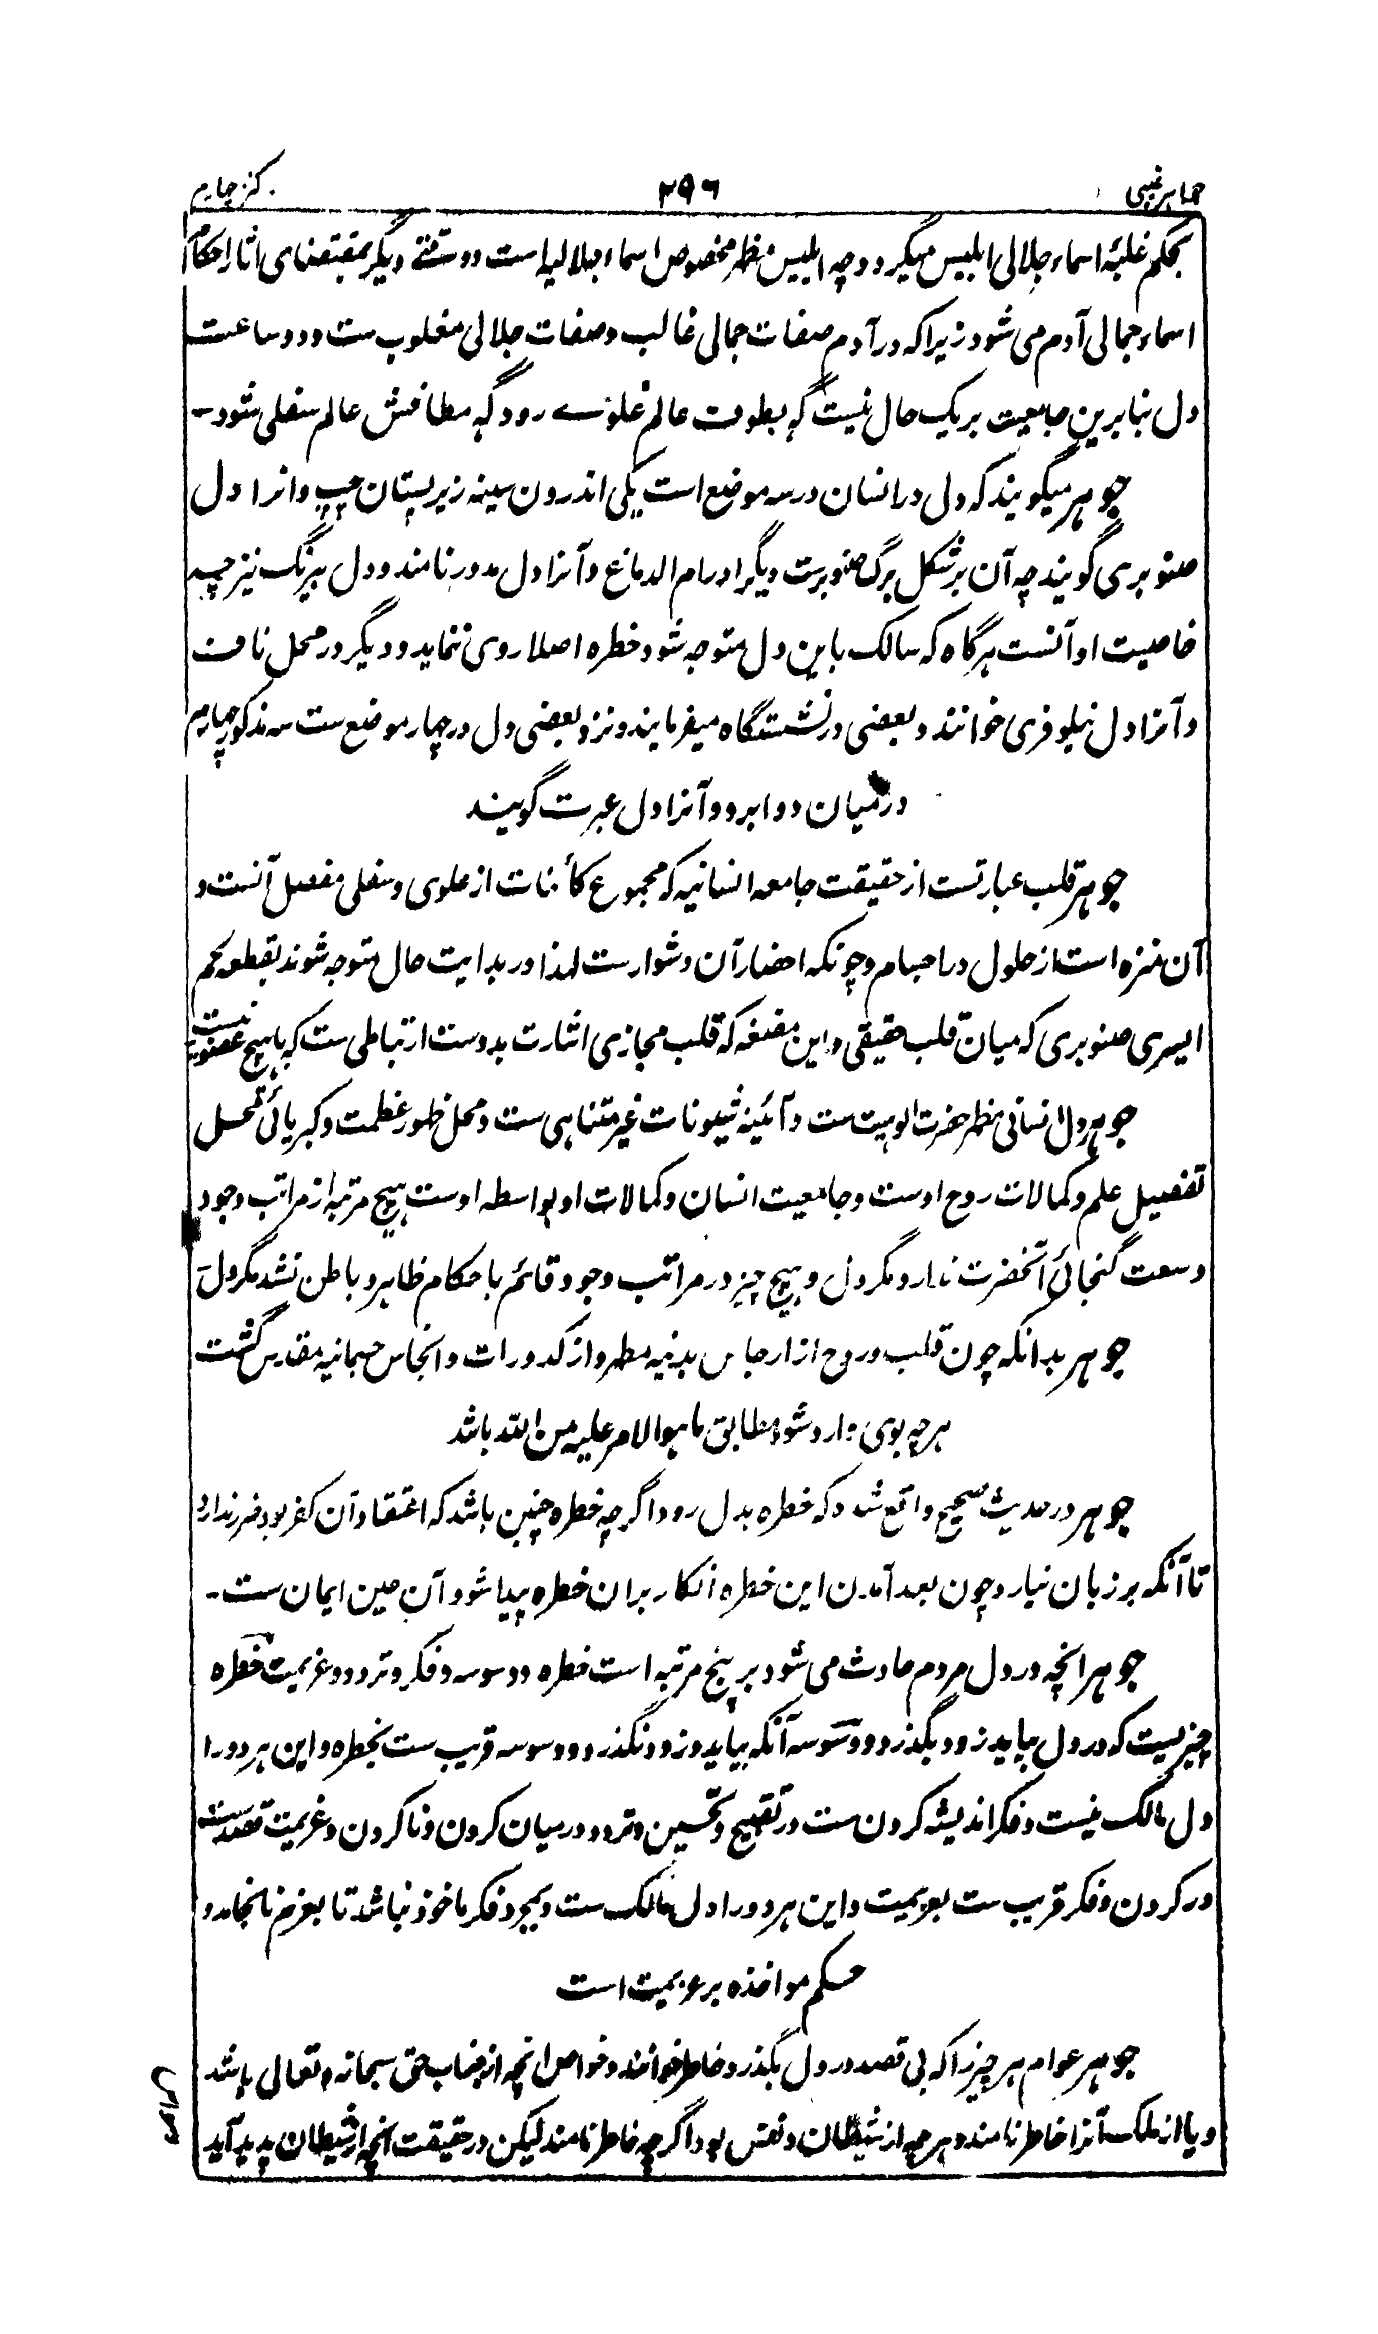 جواهر غیبی
۲۹۶
کنز چهارم
بحکم غلبهٔ اسماء جلالی ابلیس میگردد چه ابلیس مظهر مخصوص اسماء جلالیه است و وقتے دیگر بمقتضای آثار احکام
اسماء جمالی آدم می شود زیرا که در آدم صفات جمالی غالب و صفات جلالی مغلوب ست و دو ساعت
دل بنابرین جامعیت بر یک حال نیست گہ بطوف عالم علوے رود گہ مطافش عالم سفلی شود۔
جوهر میگویند که دل در انسان در سه موضع است یکی اندرون سینه زیر پستان چپ و انرا دل
صنوبری گویند چه آن بر شکل برگ صنوبرست دیگر در ام الدماغ و آنرا دل مدور نامند و دل بیرنگ نیز چه
خاصیت او آنست هرگاه که سالک باین دل متوجه شود خطره اصلا روی ننماید و دیگر در محل ناف
و آنرا دل نیلوفری خوانند و بعضی در نشستگاه میفرمایند و نزد بعضی دل در چهار موضع ست سه مذکور چهارم
در میان دو ابرو و آنرا دل عبرت گویند
جوهر قلب عبارتست از حقیقت جامعه انسانیه که مجموع کائنات از علوی و سفلی مفصل آنست و
آن منزه است از حلول در اجسام و چونکه احضار آن دشوارست لهذا در بدایت حال متوجه شوند بقطعه لحم
ایسری صنوبری که میان قلب حقیقی و این مضغه که قلب مجازی اشارت بدوست ارتباطی ست که با هیچ عضو نیست
جوهر دل انسانی مظهر حضرت الوهیت ست و آئینه شیونات غیر متناهی ست و محل ظهور عظمت و کبریائی محل
تفصیل علم و کمالات روح اوست و جامعیت انسان و کمالات او بواسطه اوست هیچ مرتبه از مراتب وجود
وسعت گنجائی آنحضرت ندارد مگر دل و هیچ چیز در مراتب وجود قائم باحکام ظاهر و باطن نشد مگر دل
جوهر بدانکه چون قلب و روح از ارجاس بدنیه مطهر و از کدورات و انجاس جسمانیه مقدس گشت
هر چه بوی وارد شود مطابق ما هو الامر علیه من الله باشد
جوهر در حدیث صحیح واقع شد که خطره بدل رود اگرچه خطره چنین باشد که اعتقاد آن کفر بود ضرر ندارد
تا آنکه بر زبان نیارد چون بعد آمدن این خطره انکار بران خطره پیدا شود آن عین ایمان ست۔
جوهر انچه در دل مردم حادث می شود بر پنج مرتبه است خطره و وسوسه و فکر و تردد و عزیمت خطره
چیزیست که در دل بیاید زود بگذرد و وسوسه آنکه بیاید و زود نگذرد و وسوسه قریب ست بخطره و این هر دو را
دل مالک نیست و فکر اندیشه کردن ست در تقبیح و تحسین و تردد در میان کردن و ناکردن و عزیمت قصدست
در کردن و فکر قریب ست بعزیمت و این هر دو را دل مالک ست و بمجرد فکر ماخوذ نباشد تا بعزم نانجامد و
حکم مواخذه بر عزیمت است
جوهر عوام هر چیز را که بی قصد در دل بگذرد خاطر خوانند و خواص انچه از جناب حق سبحانه و تعالی باشد
و یا از ملک آنرا خاطر نامند و هر چه از شیطان و نفس بود اگرچه خاطر نامند لیکن در حقیقت انچه از شیطان پدید آید